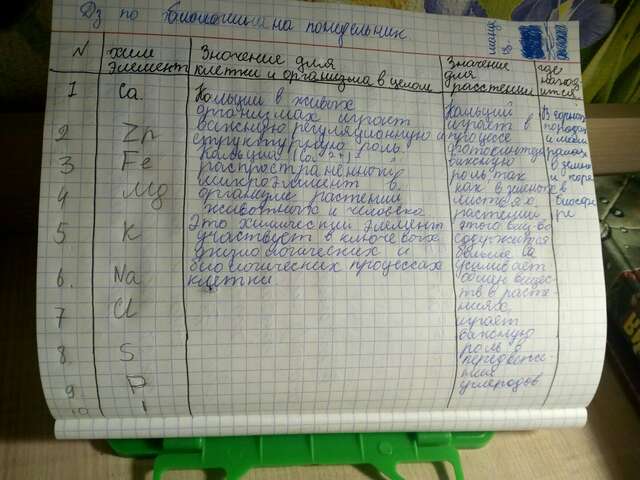 Дз по биологии на понедельник.
N
хим элемент
Значение для клетки и организма в целом
Значение для расстений
где наход ится
1 Ca.
2 Zn
3 Fe
4 Mg
5 K
6. Na
7 Cl
8. S
9. P
10 I
Кальций в живых
организмах играет
важную регуляционную и
структурную роль.
Кальций (Ca 2+) -
распространённый
микроэлемент в
организме растений
животного и человека
Это химический элемент
участвует в ключевых
физиологических и
биологических процессах
клетки
Кальций
играет в
процессе
важную
роль так
как в зелёных
листьях
растений
этого вещ-во
содержится
больше Ca
усиливает
обмен вещес-
тв в расте-
ниях,
играет
важную
роль в
передвеже-
нии
углеродов
В горных
породах
в земно
й коре
в
биосфе
ре